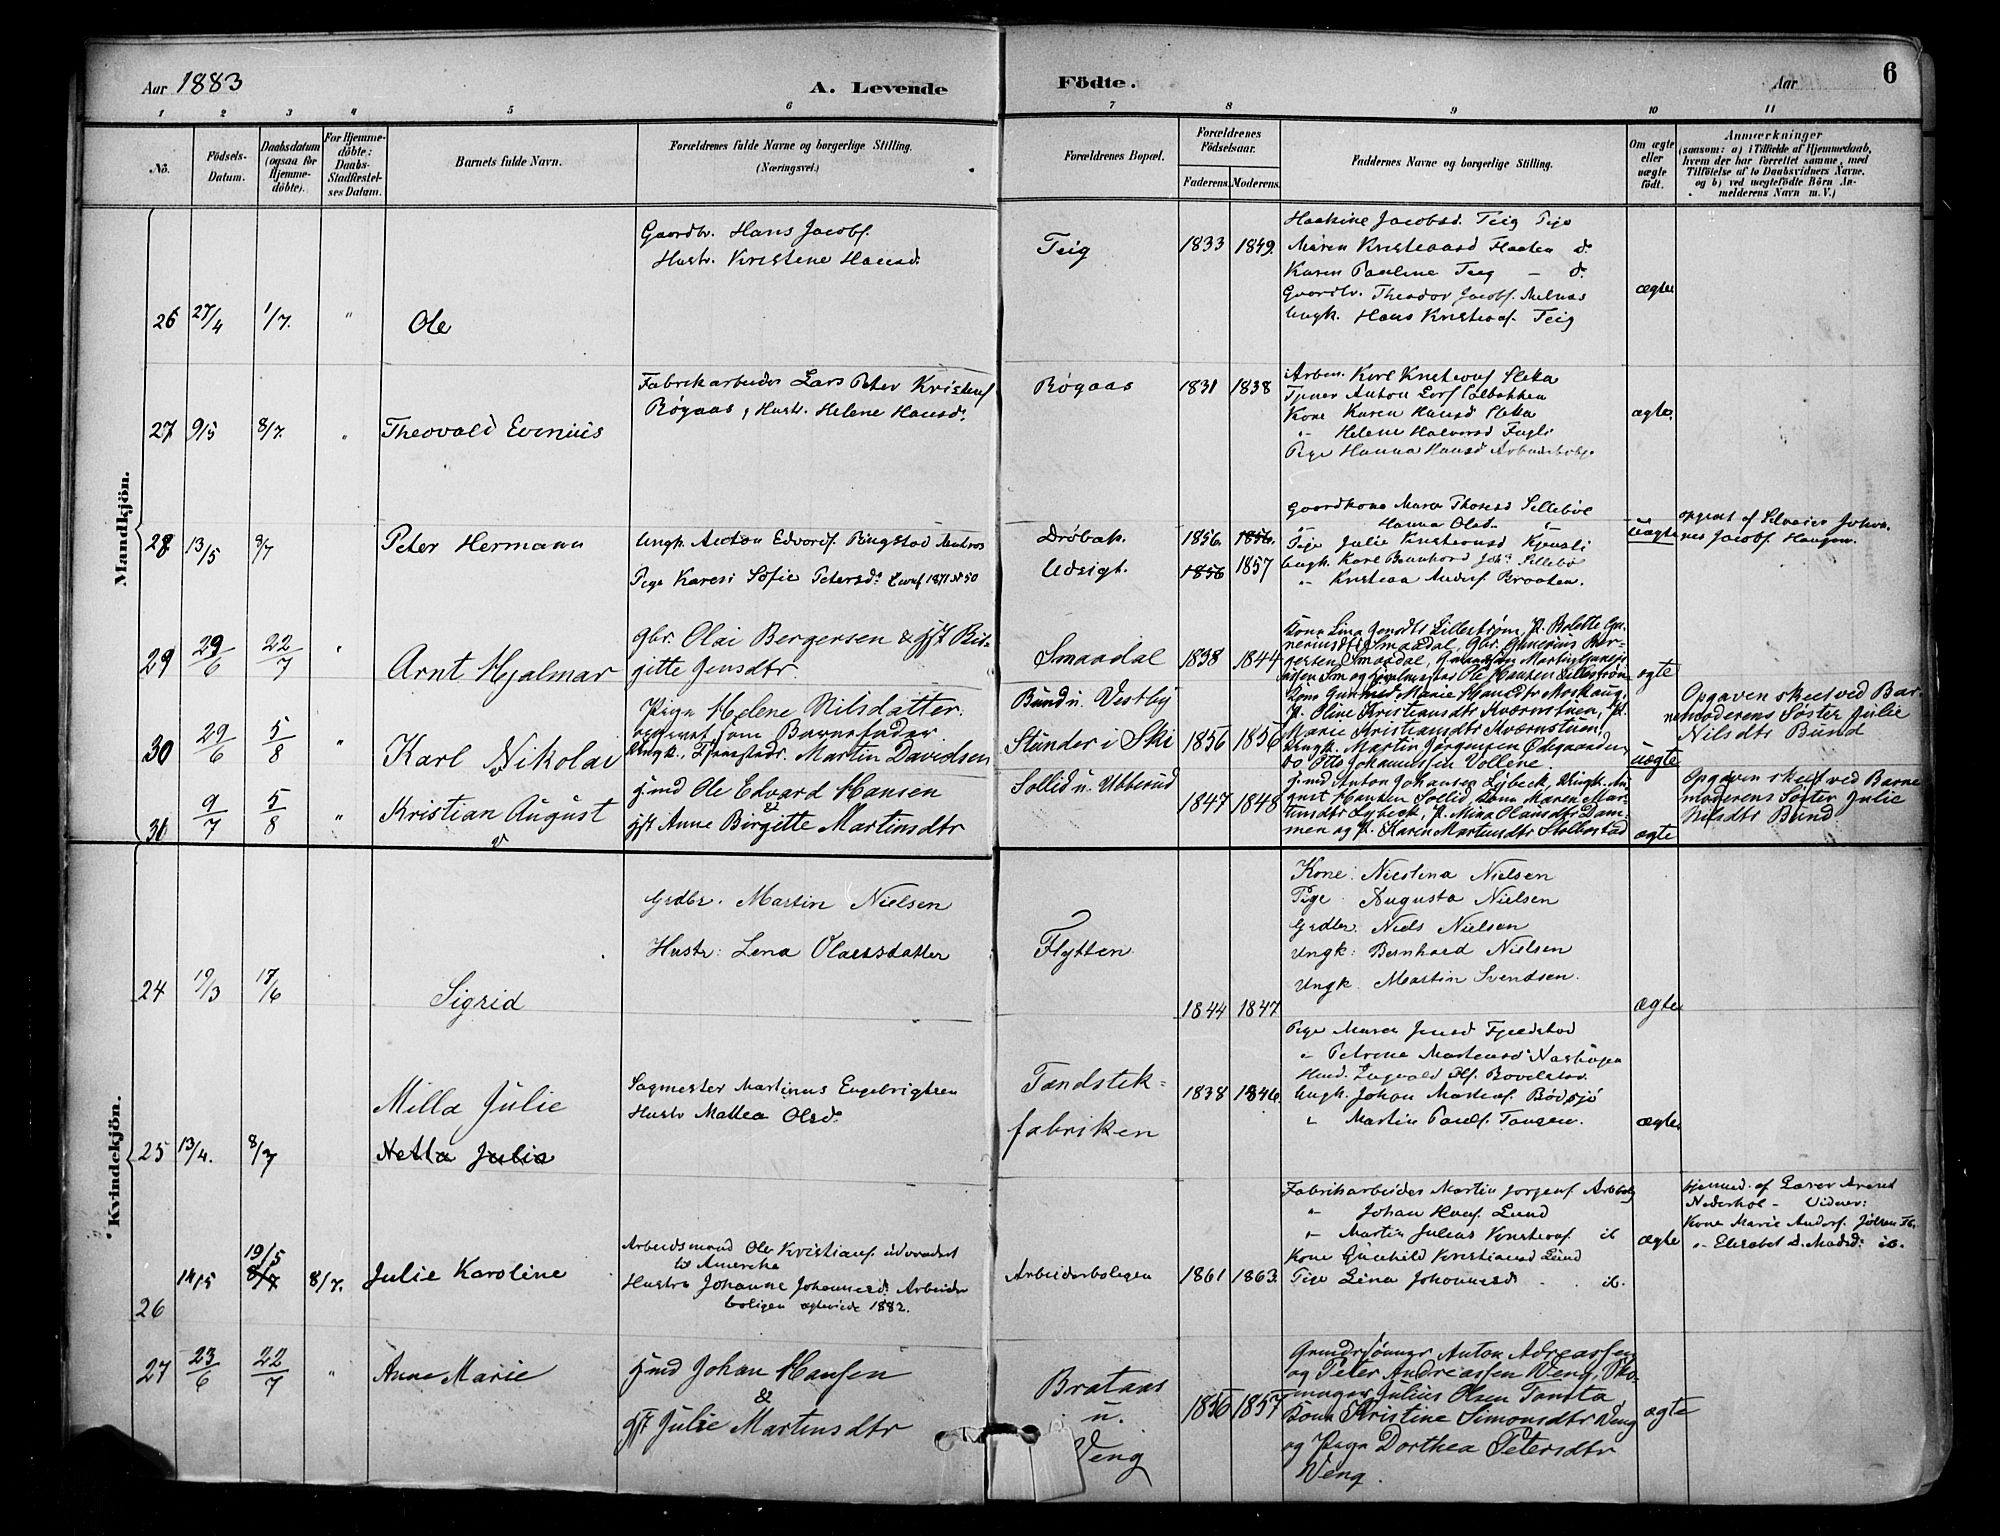 Aar 1883
A. Levende
Födte.
Aar
6
1 2 3 4 5 6 7 8 9 10 11
No.
Födsels-
Datum.
Daabsdatum
(ogsaa for
Hjemme-
döbte).
For Hjemme-
döbte:
Daabs-
Stadfæstel-
ses Datum.
Barnets fulde Navn.
Forældrenes fulde Navne og borgerlige Stilling.
(Næringsvei.)
Forældrenes Bopæl.
Forældrenes
Födselsaar.
Faderens. Moderens.
Faddernes Navne og borgerlige Stilling.
Om ægte
eller
uægte
födt.
Anmærkninger
(saasom: a) i Tilfælde af Hjemmedaab,
hvem der har forrettet samme, med
Tilföielse af to Daabsvidners Navne,
og b) ved uægtefödte Börn An-
melderens Navn m. V.)
Mandkjön.
26 27/4 1/7. " Ole
Gaardbr. Hans Jacobs.
Hustr. Kristene Hansd.
Teig
1833 1849.
Haakine Jacobsd. Teig Pige
Maren Kristeaasd Flaaten d.
Karen Pauline Teig - d.
Gaardbr. Theodor Jacobs.
Ungk. Hans Kristeas. Teig
ægte
27 9/5 8/7. " Theovald Evenius
Fabrikarbeider Lars Peter Kristens
Røgaas, Hustr. Helene Hansd.
Røgaas
1831 1838
Arben. Karl Kristeas Sleta
Tjener Anton
Kone Karen Hansd Sleta
" Helene Halvorsd Fugli
Pige Hanna Hansd
ægte.
28 13/5 8/7 Peter Hermann
Ungk. Anton Edvards. Ringstad
Pige Karen Sofie Petersd.
Drøbak.
Udsigt.
1856. 1856.
1856 1857
Gaardkone Maren Thoresd Sillebøl
Hanna Olsd. "
Pige Julie
Ungk. Karl Bernhard Joh. Sillebøl
" Kristian Anders. Braaten.
Uægte
opgivet af
Jacobs. Haugen.
29 29/6 22/7 " Arnt Hjalmar
gbr. Olai Bergersen & gft Bir-
gitte Jensdtr.
Smaadal
1838 1844
Kone Lina Jensdtr Lillestrøm, P. Bolette Gu-
nerius Ber-
gersen Smaadal,
Ole Hansen Lillestrøm
ægte
30 29/6 5/8 " Karl Nikolai
Pige Helene Nilsdatter.
opgivet som Barnefader
Ungk., Martin Davidsen
Bund u. Vestby
Stunder i Ski
1856 1856
Kone Marie Hansdtr
P. Oline Kristiansdtr Kværnstuen, P.
Marie Kristiansdtr Kværnstuen,
Ungk. Martin Jørgensen Ødegaarden
do Otto Johannessen Vollene.
uægte
Opgaven skeet ved Bar-
nemoderens Søster Julie
Nilsdtr Bund
31 9/7 5/8 " Kristian August
Hmd Ole Edvard Hansen
&
gft Anne Birgitte Martinsdtr
Sollid u. Ubberud
1847 1848
Hmd Anton Johansen Lybeck, Ungk. Au-
gust Hansen Sollid, Kone Maren Mar-
tinsdtr Lybeck, P. Mina Olausdtr Dam-
men og P. Karen Martinsdtr
ægte
Opgaven skeet ved Barne
moderens Søster Julie
Nilsdtr Bund
Kvindekjön.
24 19/3 17/6 Sigrid
Grdbr. Martin Nielsen
Hustr: Lena Olausdatter
Flytten
1844 1847
Kone: Nicolina Nielsen
Pige Augusta Nielsen
Grdbr Niels Nielsen
Ungk: Bernhard Nielsen
Ungk. Martin Svendsen.
ægte
25 13/4. 8/7 Milla Julie
Netta Julia
Sagmester Martinus Engebrigtsen
Hustr Mattea Olsd.
Tændstik-
fabriken
1838 1846.
Pige Maren Jensd Fjeldstad
" Petrine Martensd
Husd. Ingvald Bovelstad
Ungk. Johan
" Martin Pauls. Tangen.
ægte
26 14/5 19/5 8/7 8/7. Julie Karoline
Arbeidsmand Ole Kristians. udvandret
til Amerika
Hustru Johanne Johannesd. Arbeider
boligen egteviede 1882.
Arbeiderboligen
1861 1863.
Fabrikarbeider Martin Jørgens.
" Johan Hans. Lund
" Martin Julius Kristeas. ib
Kone Gunhild Kristiansd Lund
Pige Lina Johannesd - ib.
ægte
hjemmed. af Lærer
Vidner:
Kone Marie Anders.
" Elisabet D. Madsd: ib.
27 23/6 22/7 " Anne Marie
Hmd Johan Hansen
&
gft Julie Martinsdtr
Brataas
u.
Veng
1856 1857
Anton Adreassen
og Peter Andreassen Veng, Sko-
mager Julius Olsen Tomta,
Kone Kristine Simonsdtr Veng
og Pige Dorthea Petersdtr
Veng.
ægte